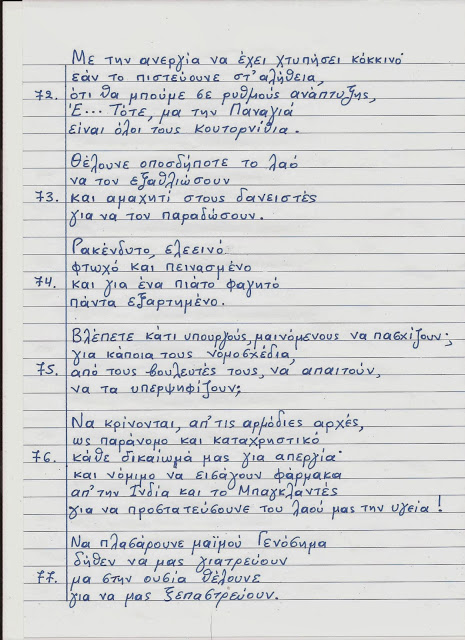 Με την ανεργία να έχει χτυπήσει κόκκινο·
εάν το πιστεύουνε στ' αλήθεια,
72. ότι θα μπούμε σε ρυθμούς ανάπτυξης,
Έ... Τότε, μα την Παναγιά
είναι όλοι τους κουτορνίθια.
Θέλουνε οπωσδήποτε το λαό
να τον εξαθλιώσουν
73. και αμαχητί στους δανειστές
για να τον παραδώσουν.
Ρακένδυτο, ελεεινό
φτωχό και πεινασμένο
74. και για ένα πιάτο φαγητό
πάντα εξαρτημένο.
Βλέπετε κάτι υπουργούς, μαινόμενους να πασχίζουν;
για κάποια τους νομοσχέδια,
75. από τους βουλευτές τους, να απαιτούν,
να τα υπερψηφίζουν;
Να κρίνονται, απ' τις αρμόδιες αρχές,
ως παράνομο και καταχρηστικό
76. κάθε δικαίωμά μας για απεργία·
και νόμιμο να εισάγουν φάρμακα
απ' την Ινδία και το Μπαγκλαντές
για να προστατεύσουνε του λαού μας την υγεία!
Να πλασάρουνε μαϊμού Γενόσημα
δήθεν να μας γιατρεύουν
77. μα στην ουσία θέλουνε
για να μας ξεπαστρεύουν.